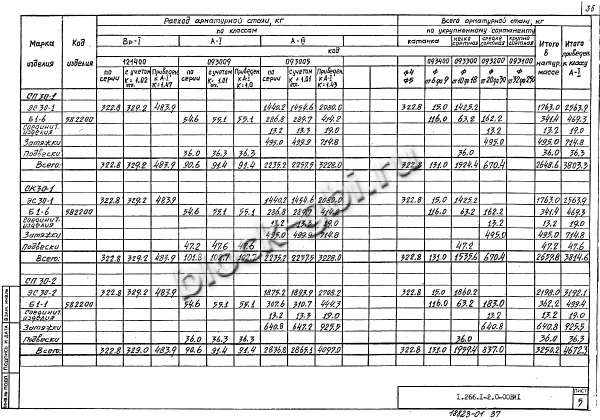 36
Расход арматурной стали, кг
Всего арматурной стали, кг
по классам
по укрупненному сортаменту
Марка изделия
Код изделия
Вр-I
А-I
А-III
катанка
мелко сортная
средне сортная
крупно сортная
Итого в натур. массе
Итого приведен. к классу А-I
код
121400
093009
093005
093400 093300 093200 093100
по серии
с учетом К=1.02
Приведен к А-I К=1.47
по серии
с учетом К=1.01
Приведен к А-I К=1.0
по серии
с учетом К=1.01
Приведен к А-I К=1.43
Ф4 Ф5
Ф от 6 до 9
Ф от 10 до 18
СП 30-1
ЭС 30-1 322.8 329.2 483.9 1440.2 1454.6 2080.0 322.8 15.0 1425.2 1763.0 2563.9
Б1-6 582200 54.6 55.1 55.1 286.8 289.7 414.2 116.0 63.2 162.2 341.4 469.3
Соединит. изделия 13.2 13.3 19.0 13.2 13.2 19.0
Затяжки 495.0 499.9 714.8 495.0 495.0 714.8
Подвески 36.0 36.3 36.3 36.0 36.0 36.3
Всего: 322.8 329.2 483.9 90.6 91.4 91.4 2235.2 2257.5 3228.0 322.8 131.0 1524.4 670.4 2648.6 3803.3
ОК 30-1
ЭС 30-1 322.8 329.2 483.9 1440.2 1454.6 2080.0 322.8 15.0 1425.2 1763.0 2563.9
Б1-6 582200 54.6 55.1 55.1 286.8 289.7 414.2 116.0 63.2 162.2 341.4 469.3
Соединит. изделия 13.2 13.3 19.0 13.2 13.2 19.0
Затяжки 495.0 499.9 714.8 495.0 495.0 714.8
Подвески 47.2 47.6 47.6 47.2 47.2 47.6
Всего: 322.8 329.2 483.9 101.8 102.7 102.7 2235.2 2257.5 3228.0 322.8 131.0 1535.6 670.4 2659.8 3814.6
СП 30-2
ЭС 30-2 322.8 329.2 483.9 1875.2 1893.9 2708.2 322.8 15.0 1860.2 2198.0 3192.1
Б1-1 582200 54.6 55.1 55.1 307.6 310.7 444.3 116.0 63.2 183.0 362.2 499.4
Соединит. изделия 13.2 13.3 19.0 13.2 13.2 19.0
Затяжки 640.8 647.2 925.5 640.8 640.8 925.5
Подвески 36.0 36.3 36.3 36.0 36.0 36.3
Всего: 322.8 329.0 483.9 90.6 91.4 91.4 2836.8 2865.1 4097.0 322.8 131.0 1959.4 837.0 3250.2 4672.3
block-gbi.ru
1.266.1-2.0-00ВМ1
Лист
5
18823-01 37
Инв. № подл.
Подпись и дата
Взам. инв. №